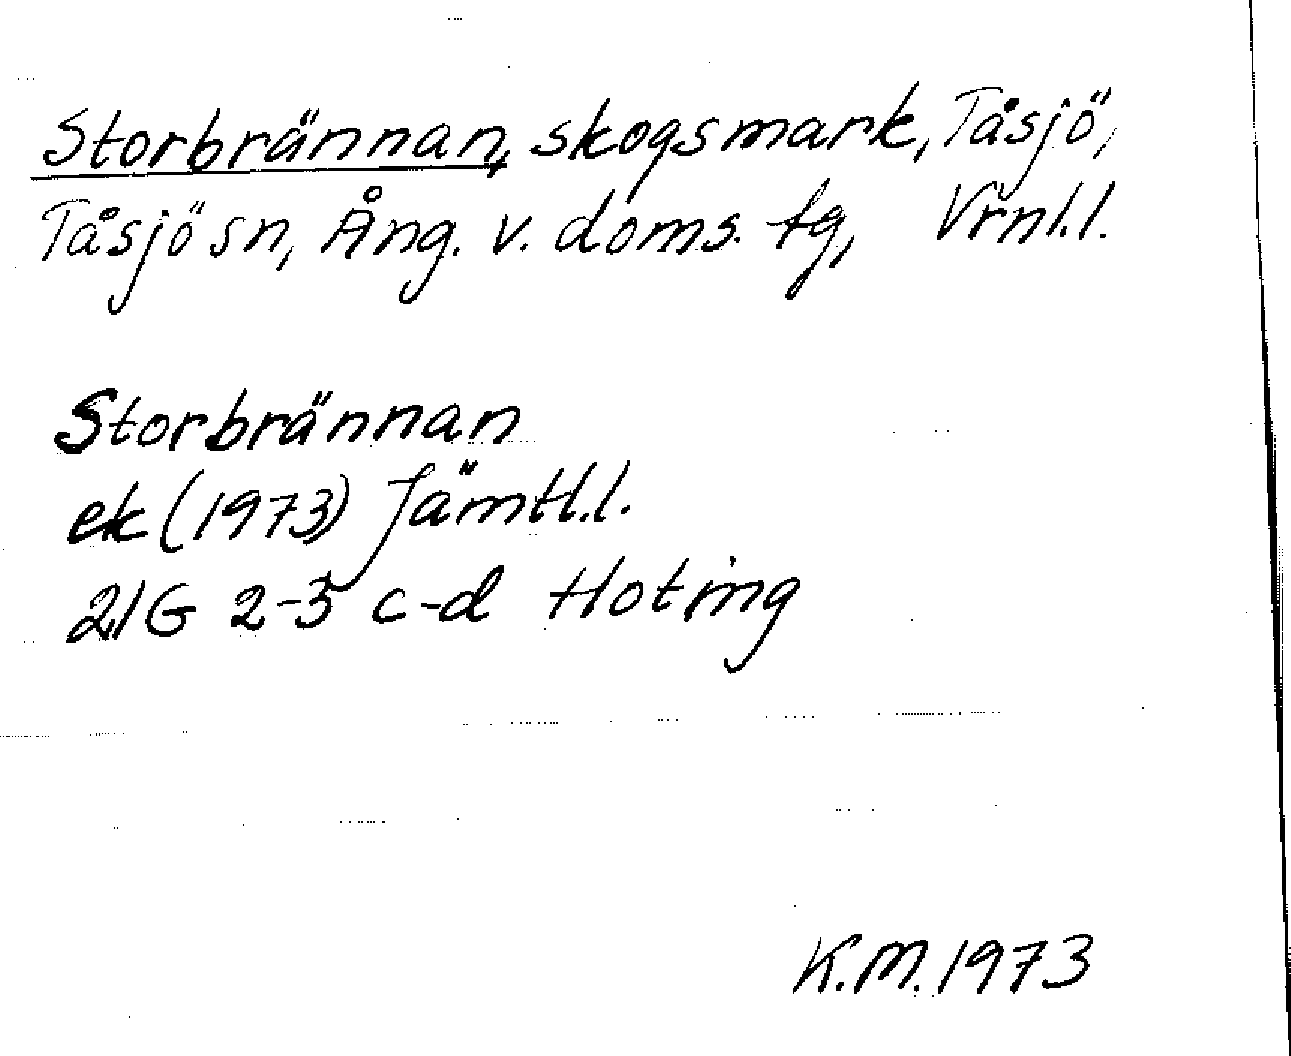 Storbrännan, skogsmark, Tåsjö,
Tåsjö sn, Ång. v. doms. tg, Vrnl.l.
Storbrännan
ek (1973) Jämtl.l.
21G 2-3 c-d Hoting
K.M. 1973